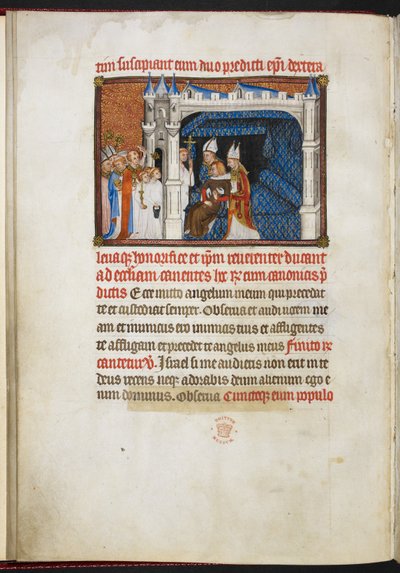 tim suscipiant eum duo predicti ep̄i dextera
levaq; honorifice et ip̄m reverenter ducant
ad eccl̄iam canentes hc ℞ cum canonicis p̄
dictis Ecce mitto angelum meum qui precedat
te et custodiat semper. Observa et audi vocem me
am et inimicus ero inimicis tuis et affligentes
te affligam et precedet te angelus meus Finito ℞
cantetur ℣. Israel si me audieris non erit in te
deus recens neq; adorabis deum alienum ego e
nim dominus. Observa Cunctisq; cum populo
BRITISH
MUSEUM